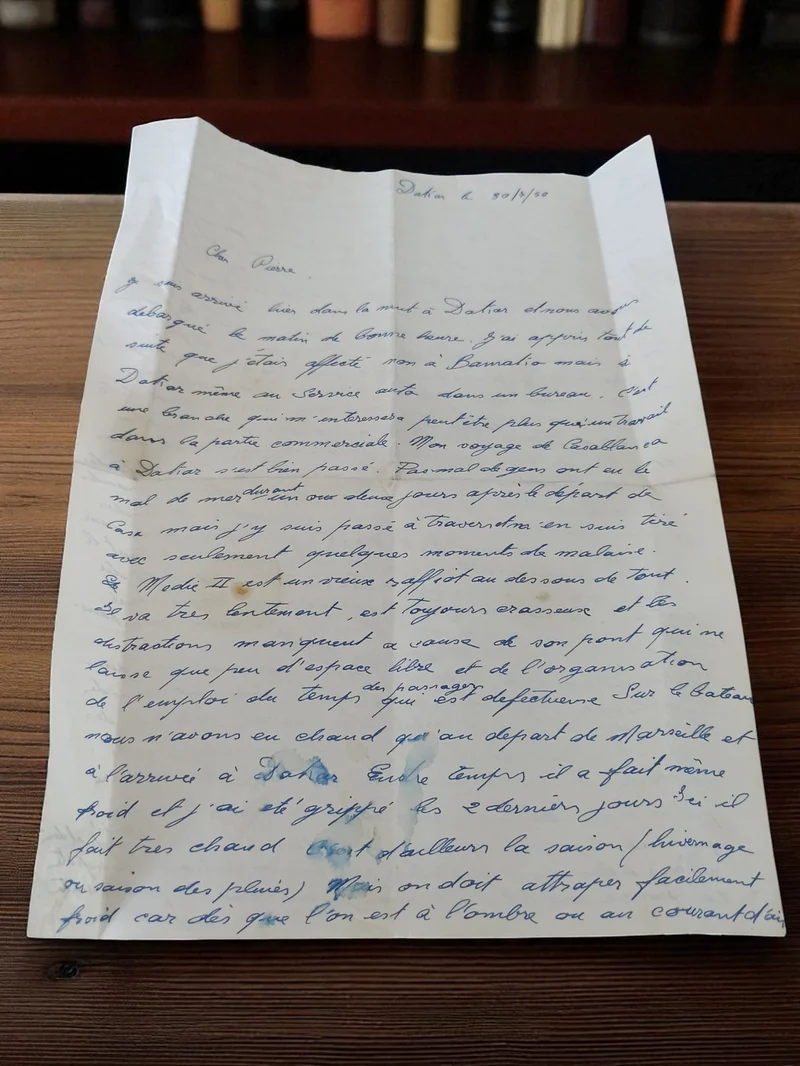 Dakar le 30/8/50
Cher Pierre.
Je suis arrivé hier dans la nuit à Dakar et nous avons
débarqué le matin de bonne heure. J'ai appris tout de
suite que j'étais affecté non à Bamako mais à
Dakar même au Service auto dans un bureau. C'est
une branche qui m'interessera peut être plus qu'un travail
dans la partie commerciale. Mon voyage de Casablanca
à Dakar s'est bien passé. Pas mal de gens ont eu le
mal de mer durant un ou deux jours après le départ de
Casa mais j'y suis passé à travers en suis tiré
avec seulement quelques moments de malaise.
Le Medie II est un vieux raffiot au dessous de tout.
Il va très lentement, est toujours crasseux et les
distractions manquent a cause de son pont qui ne
laisse que peu d'espace libre et de l'organisation
de l'emploi du temps des passagers qui est defectueuse Sur le bateau
nous n'avons eu chaud qu'au depart de Marseille et
à l'arrivée à Dakar Entre temps il a fait même
froid et j'ai eté grippé les 2 derniers jours Ici il
fait tres chaud c'est d'ailleurs la saison (hivernage
ou saison des pluies) Mais on doit attraper facilement
froid car dès que l'on est à l'ombre ou au courant d'air